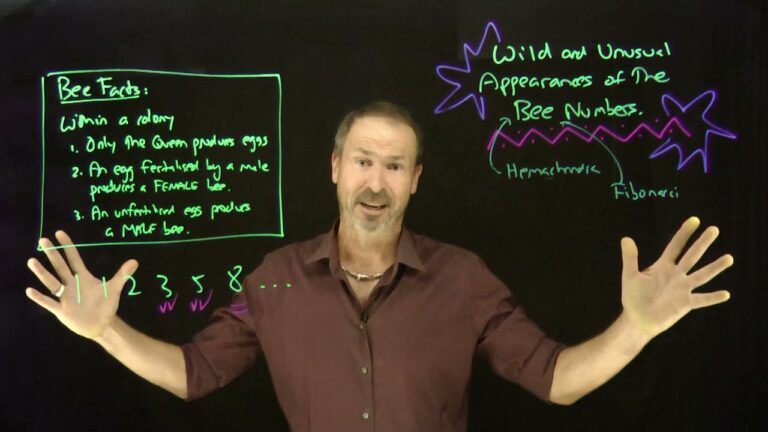 Bee Facts:
Within a colony
1. Only The Queen produces eggs
2. An egg fertilised by a male
produces a FEMALE bee.
3. An unfertilised egg produces
a MALE bee.
1 1 2 3 5 8 ...
Wild and Unusual
Appearances of The
Bee Numbers.
Hemachandra
Fibonacci